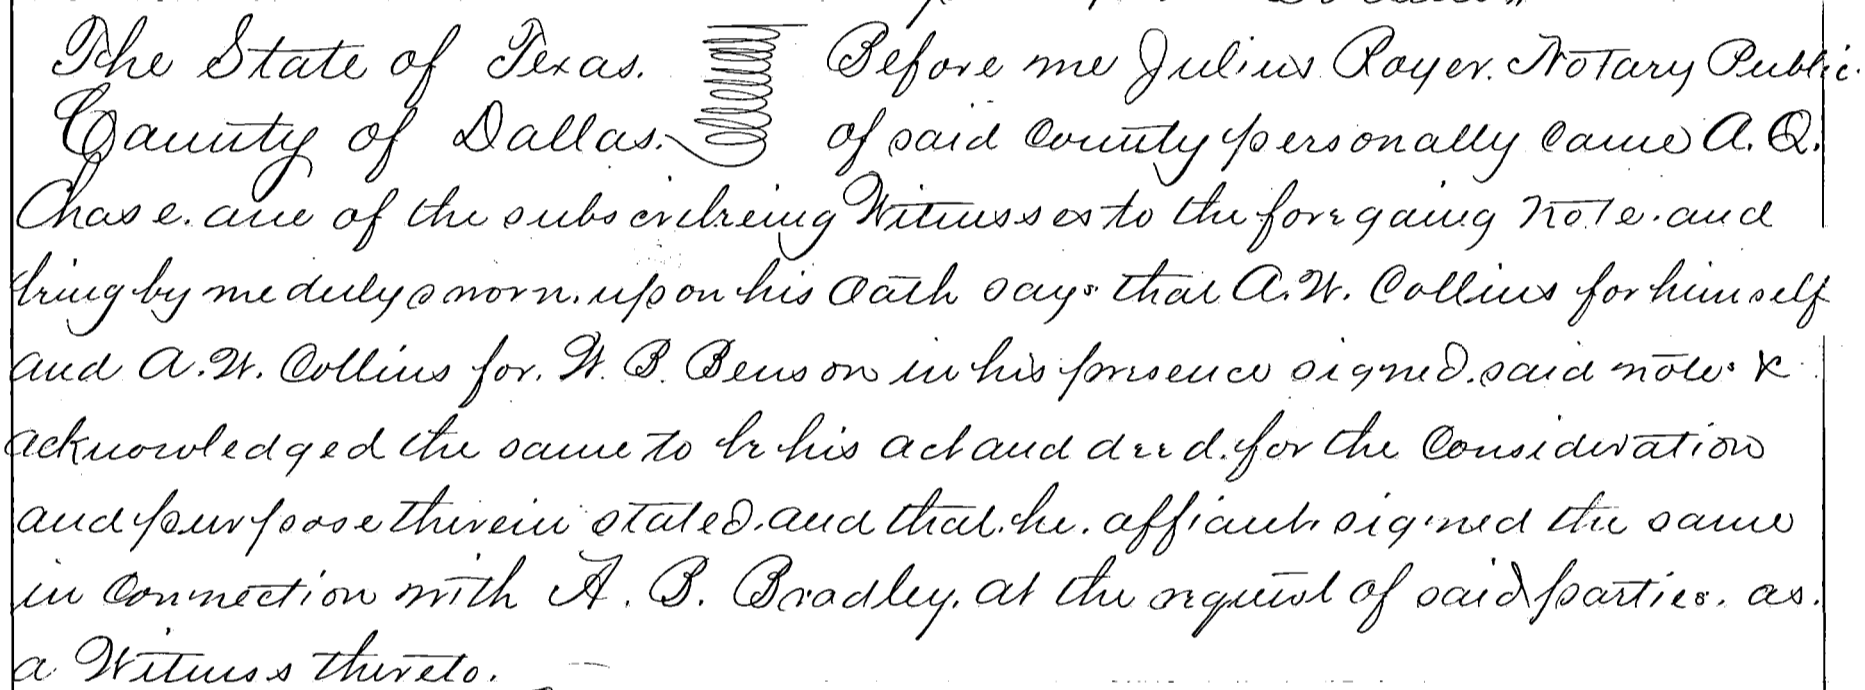 The State of Texas. Before me Julius Royer. Notary Public.
County of Dallas. of said County personally came A. Q.
Chase. one of the subscribeing Witnesses to the foregoing note. and
being by me duly sworn. upon his Oath says that A. W. Collins for himself
and A. W. Collins for. W. B. Benson in his presence signed. said note. &
acknowledged the same to be his act and deed. for the Consideration
and purpose therein stated. and that. he. affiant. signed the same
in Connection with A. B. Bradley. at the request of said parties. as.
a Witness thereto.